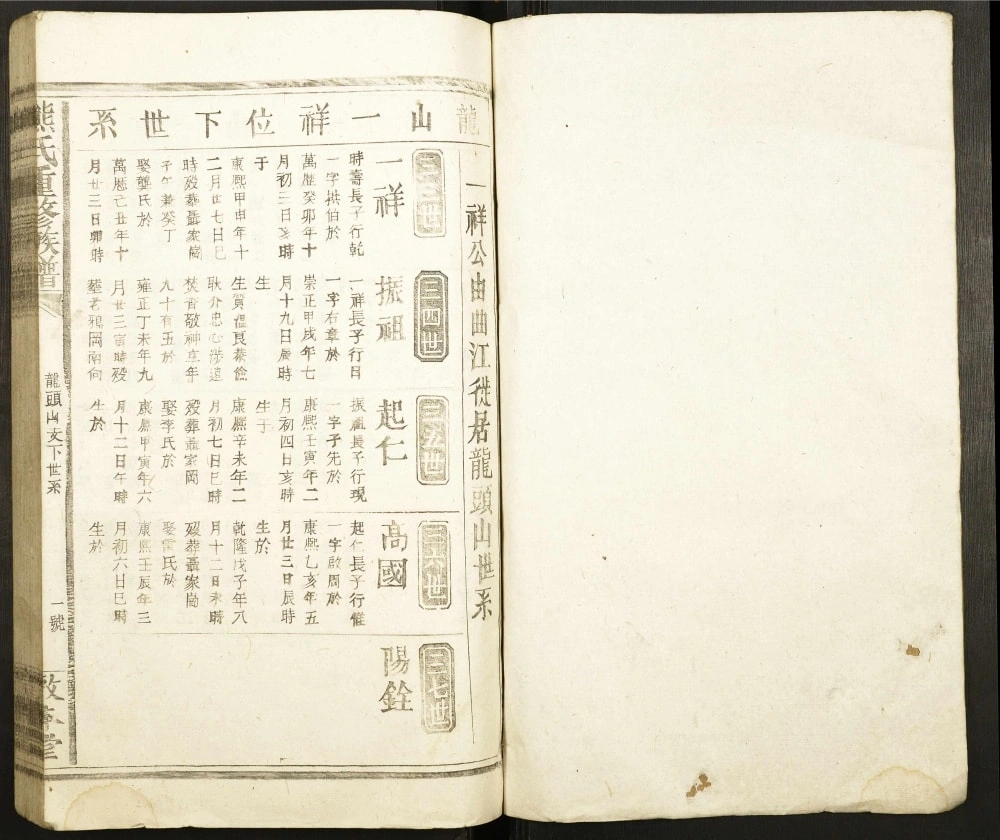 龍山一祥位下世系
一祥公由曲江徙居龍頭山世系
三三世
一祥
時壽長子行乾
一字拱伯於
萬歷癸卯年十
月初三日亥時
于
康熙甲申年十
二月廿七日巳
時歿葬聶家崗
子午兼癸丁
娶龔氏於
萬歷乙丑年十
月廿三日卯時
三四世
振祖
一祥長子行日
一字右章於
崇正甲戌年七
月十九日辰時
生
生質溫良恭儉
耿介忠心涉遠
焚香敬神享年
九十有五於
雍正丁未年九
月廿三寅時歿
葬老鴉岡南向
三五世
起仁
振祖長子行現
一字子先於
康熙壬寅年二
月初四日亥時
生于
康熙辛未年二
月初七日巳時
歿葬聶家岡
娶李氏於
康熙甲寅年六
月十二日午時
生於
三六世
高國
起仁長子行催
一字啟周於
康熙乙亥年五
月廿三日辰時
生於
乾隆戊子年八
月十二日未時
歿葬聶家崗
娶雷氏於
康熙壬辰年三
月初六日巳時
生於
三七世
陽銓
熊氏重修族譜
龍頭山支下世系
一號